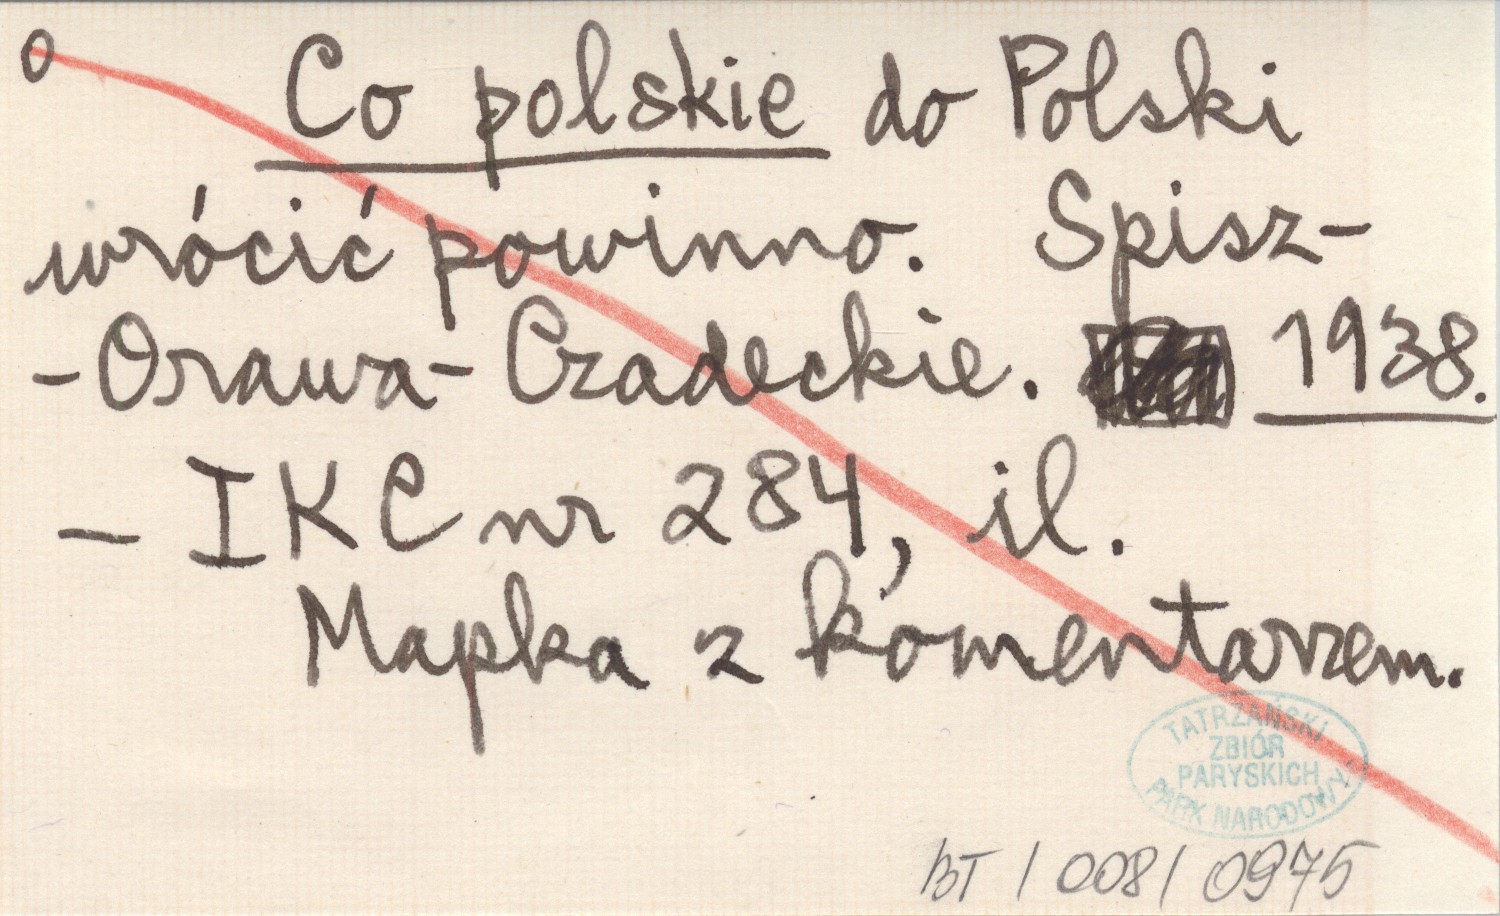 o Co polskie do Polski
wrócić powinno. Spisz-
-Orawa-Czadeckie. 1938.
- IKC nr 284, il.
Mapka z komentarzem.
TATRZAŃSKI
ZBIÓR
PARYSKICH
PARK NARODOWY
BT / 008 / 0975